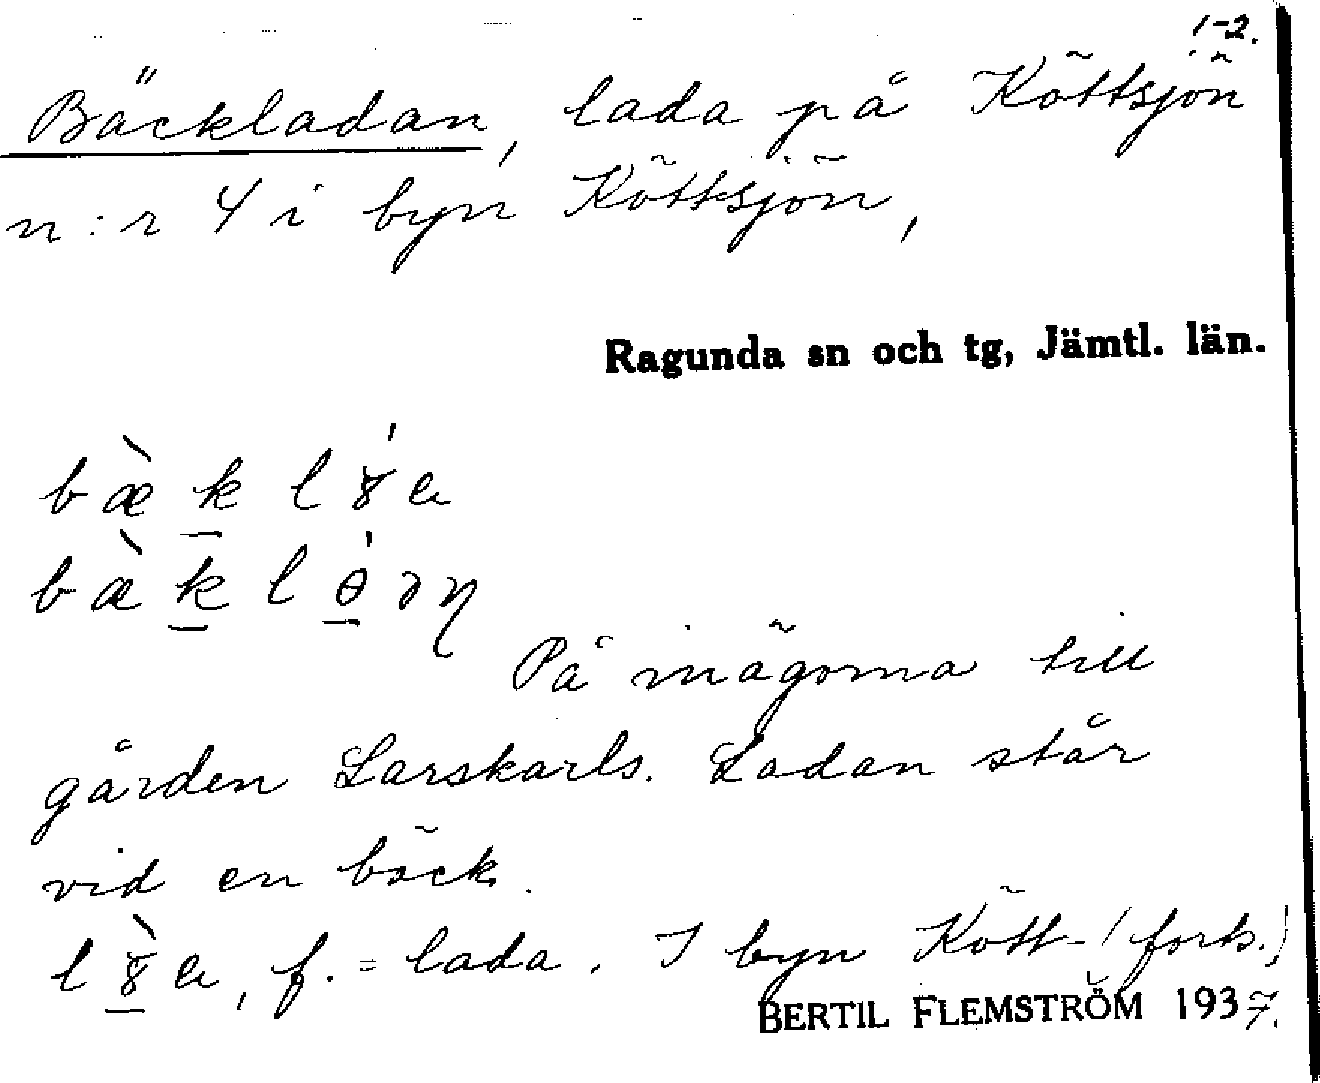 1-2.
Bäckladan, lada på Köttsjön
n:r 4 i byn Köttsjön,
Ragunda sn och tg, Jämtl. län.
På inägorna till
gården Larskarls. Ladan står
vid en bäck.
f. = lada. I byn Kött- (forts.)
BERTIL FLEMSTRÖM 1937.